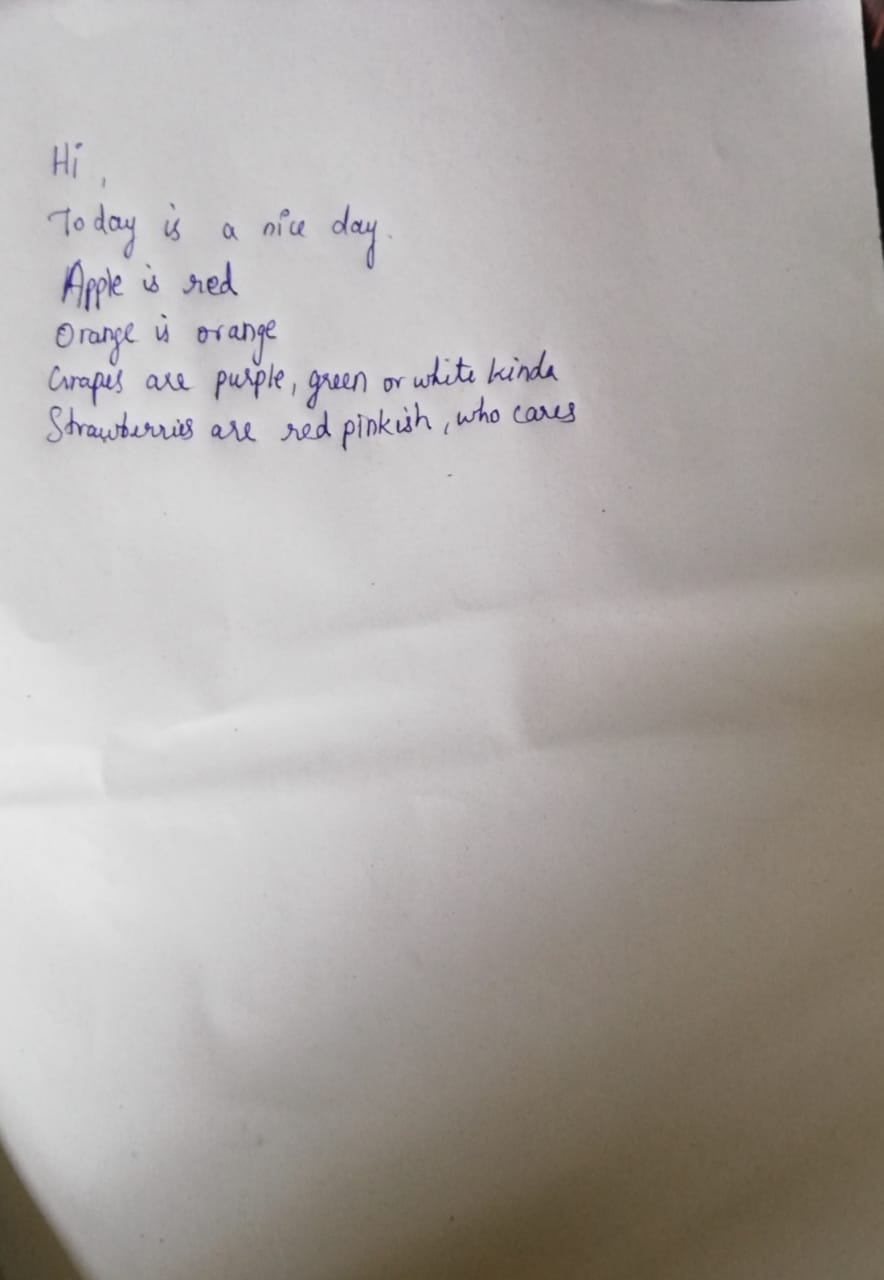 Hi,
Today is a nice day.
Apple is red
Orange is orange
Grapes are purple, green or white kinda
Strawberries are red pinkish, who cares